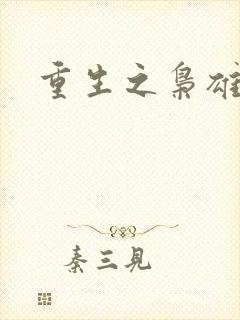 重生之枭雄
秦三见